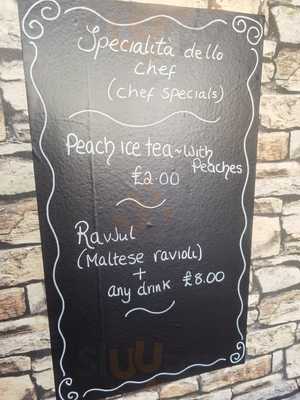 Specialità dello
chef
(chef specials)
Peach ice tea ~ with
Peaches
£2.00
Ravjul
(Maltese ravioli)
+
any drink £8.00